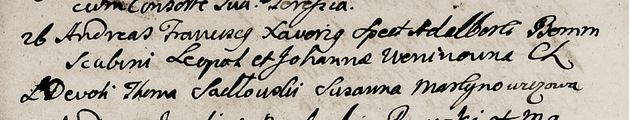 cum Consorte sua Teresia.
26 Andreas Franciscq Xaverig Spect Adalberti Bomm
Scabini Leopol et Johannæ Weninowna Ch
L Devoti Thoma Sadlowskii Susanna Martynowiczowa